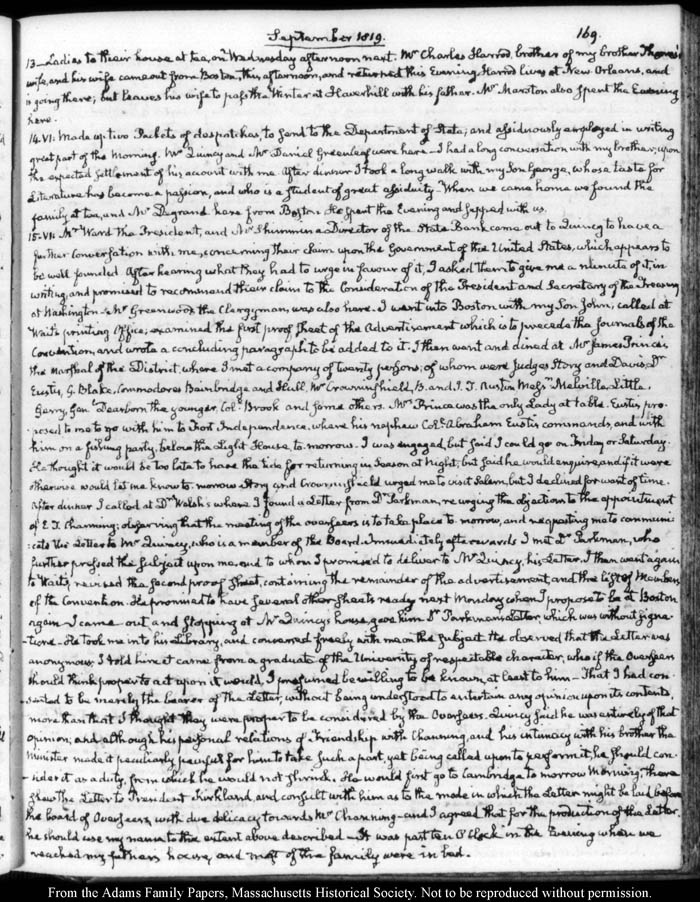 September 1819.
169.
13_ Ladies to their house at tea, on Wednesday afternoon next. Mr Charles Harrod, brother of my brother Thomas's
wife, and his wife came out from Boston, this afternoon, and returned this Evening. Harrod lives at New Orleans, and
is going there; but leaves his wife to pass the Winter at Haverhill with his father. Mr Marston also spent the Evening
here.
14. VI: Made up two Packets of despatches, to send to the Department of State; and assiduously employed in writing
great part of the Morning. Mr Quincy and Mr Daniel Greenleaf were here_ I had a long conversation with my brother, upon
the expected settlement of his account with me. After dinner I took a long walk with my Son George, whose taste for
Literature has become a passion, and who is a Student of great assiduity_ When we came home we found the
family at tea, and Mr Degrand here from Boston. He spent the Evening and supped with us.
15. VI: Mr Ward the President, and Mr Shimmin a Director of the State Bank came out to Quincy to have a
further conversation with me, concerning their claim upon the Government of the United States, which appears to
be well founded. After hearing what they had to urge in favour of it, I asked them to give me a minute of it, in
writing, and promised to recommend their claim to the Consideration of the President and Secretary of the Treasury
at Washington_ Mr Greenwood, the Clergyman, was also here. I went into Boston with my Son John, called at
Wait's printing Office; examined the first proof Sheet of the Advertisement which is to precede the Journals of the
Convention, and wrote a concluding paragraph to be added to it. I then went and dined at Mr James Prince's
the Marshal of the District, where I met a company of twenty persons; of whom were Judges Story and Davis, Dr
Eustis, G. Blake, Commodores Bainbridge and Hull, Mr Crowninshield, B. and I. T. Austin Messrs Melville, Little,
Gerry, Genl Dearborn the younger, Coll Brook and some others. Mrs Prince was the only Lady at table. Eustis pro-
posed to me to go with him to Fort Independence, where his nephew Coll Abraham Eustis commands, and with
him on a fishing party, below the Light House, to-morrow. I was engaged, but said I could go on Friday or Saturday.
He thought it would be too late to have the tide for returning in Season at Night; but said he would enquire, and if it were
otherwise would let me know to-morrow. Story and Crowninshield urged me to visit Salem, but I declined for want of time.
After dinner I called at Dr Welsh's where I found a Letter from Dr Parkman, re-urging the objection to the appointment
of E. T. Channing; observing that the meeting of the overseers is to take place to-morrow, and requesting me to communi-
cate the Letter to Mr Quincy, who is a member of the Board. Immediately afterwards I met Dr Parkman, who
further pressed the subject upon me, and to whom I promised to deliver to Mr Quincy, his Letter. I then went again
to Wait's, revised the second proof Sheet, containing the remainder of the advertisement, and the list of Members
of the Convention. He promised to have several other Sheets ready next Monday, when I propose to be at Boston
again. I came out, and stopping at Mr Quincy's house, gave him Dr Parkman's Letter, which was without signa-
ture_ He took me into his Library, and conversed freely with me on the subject. He observed that the Letter was
anonymous. I told him it came from a graduate of the University of respectable character, who if the Overseers
should think proper to act upon it would, I presumed be willing to be known, at least to him_ That I had con-
sented to be merely the bearer of the Letter, without being understood to entertain any opinion upon its contents,
more than that I thought they were proper to be considered by the Overseers. Quincy said he was entirely of that
opinion, and although his personal relations of Friendship with Channing, and his intimacy with his brother the
Minister made it peculiarly painful for him to take such a part, yet being called upon to perform it, he should con-
sider it as a duty, from which he would not shrink. He would first go to Cambridge to-morrow Morning, there
shew the Letter to President Kirkland, and consult with him as to the mode in which the Letter might be laid before
the board of Overseers, with due delicacy towards Mr Channing_ and I agreed that for the production of the Letter,
he should use my name to the extent above described_ It was past ten O'Clock in the Evening when we
reached my father's house, and most of the family were in bed.
From the Adams Family Papers, Massachusetts Historical Society. Not to be reproduced without permission.